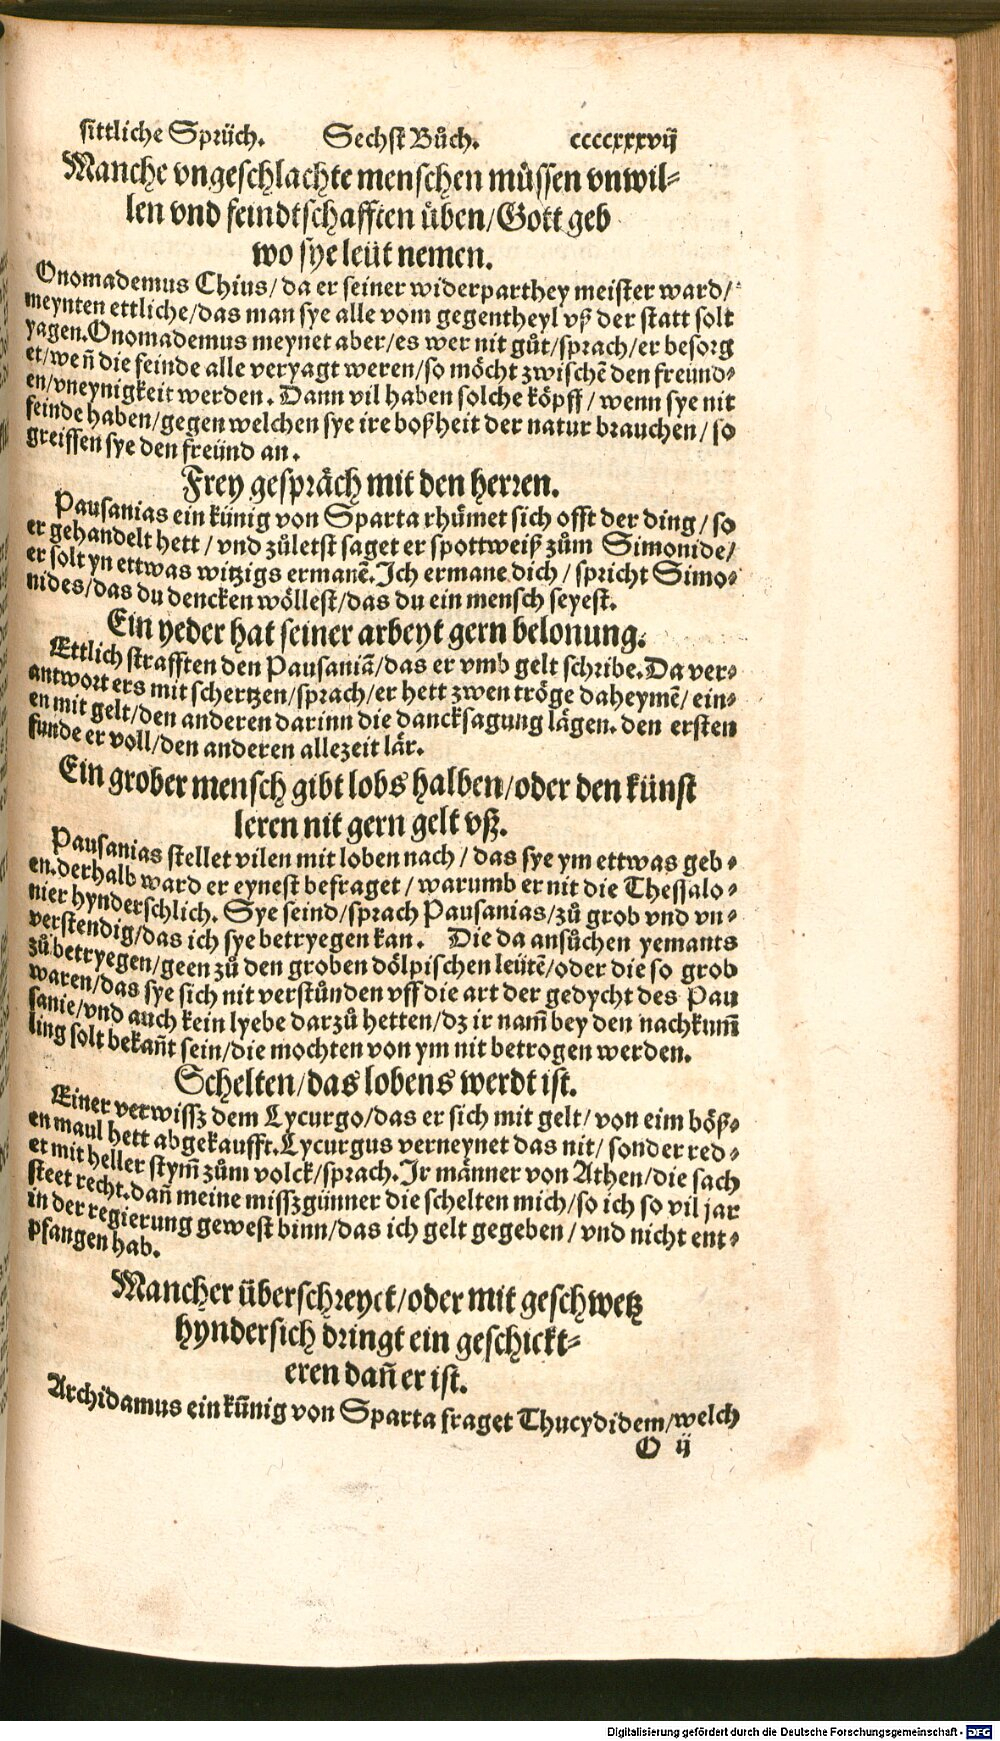 sittliche Sprüch. Sechst Bůch. ccccxxxvij
Manche vngeschlachte menschen müssen vnwil-
len vnd feindtschafften üben/Gott geb
wo sye leüt nemen.
Onomademus Chius/da er seiner widerparthey meister ward/
meynten ettliche/das man sye alle vom gegentheyl vß der statt solt
yagen.Onomademus meynet aber/es wer nit gůt/sprach/er besorg
et/weñ die feinde alle veryagt weren/so möcht zwischẽ den freünd-
en/vneynigkeit werden. Dann vil haben solche köpff/wenn sye nit
feinde haben/gegen welchen sye ire boßheit der natur brauchen/so
greiffen sye den freünd an.
Frey gespräch mit den herren.
Pausanias ein künig von Sparta rhümet sich offt der ding/so
er gehandelt hett/vnd zůletst saget er spottweiß zům Simonide/
er solt yn ettwas witzigs ermanẽ.Ich ermane dich/spricht Simo-
nides/das du dencken wöllest/das du ein mensch seyest.
Ein yeder hat seiner arbeyt gern belonung.
Ettlich strafften den Pausaniã/das er vmb gelt schribe.Da ver-
antwort ers mit schertzen/sprach/er hett zwen tröge daheymẽ/ein-
en mit gelt/den anderen darinn die dancksagung lägen.den ersten
funde er voll/den anderen allezeit lär.
Ein grober mensch gibt lobs halben/oder den künst
leren nit gern gelt vß.
Pausanias stellet vilen mit loben nach/das sye ym ettwas geb-
en.derhalb ward er eynest befraget/warumb er nit die Thessalo-
nier hynderschlich. Sye seind/sprach Pausanias/zů grob vnd vn-
verstendig/das ich sye betryegen kan. Die da ansůchen yemants
zů betryegen/geen zů den groben dölpischen leütẽ/oder die so grob
waren/das sye sich nit verstünden vff die art der gedycht des Pau
sanie/vnd auch kein lyebe darzů hetten/dz ir nam̃ bey den nachkum̃
ling solt bekañt sein/die mochten von ym nit betrogen werden.
Schelten/das lobens werdt ist.
Einer verwissz dem Lycurgo/das er sich mit gelt/von eim böß-
en maul hett abgekaufft.Lycurgus verneynet das nit/sonder red-
et mit heller stym̃ zům volck/sprach.Ir männer von Athen/die sach
steet recht.dañ meine missgünner die schelten mich/so ich so vil jar
in der regierung gewest binn/das ich gelt gegeben/vnd nicht ent-
pfangen hab.
Mancher überschreyet/oder mit geschwetz
hyndersich dringt ein geschickt-
eren dañ er ist.
Archidamus ein künig von Sparta fraget Thucydidem/welch
O ij
Digitalisierung gefördert durch die Deutsche Forschungsgemeinschaft - DFG